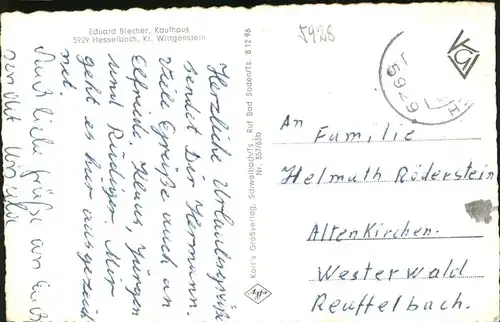 Eduard Blecher, Kaufhaus
5929 Hesselbach, Kr. Wittgenstein
Herzliche Urlaubsgrüße
sendet Dir Hermann.
Viele Grüße auch an
Elfriede, Klaus, Jürgen
und Rüdiger Mir
geht es hier ausgezeich
net.
liche Grüße an
Karl's Großverlag, Schwalbach/Ts. Ruf Bad Soden/Ts. 8 12 96
Nr. 357/63b
5928
5929
An
Familie
Helmuth Röderstein
Altenkirchen.
Westerwald
Reuffelbach.